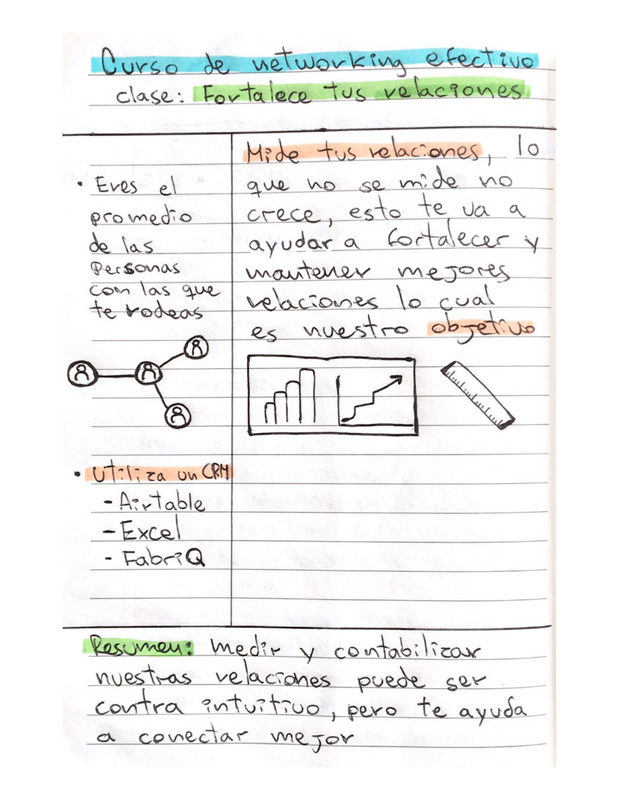 Curso de networking efectivo
clase: Fortalece tus relaciones
• Eres el
promedio
de las
personas
con las que
te rodeas
• Utiliza un CRM
- Airtable
- Excel
- FabriQ
Mide tus relaciones, lo
que no se mide no
crece, esto te va a
ayudar a fortalecer y
mantener mejores
relaciones lo cual
es nuestro objetivo
Resumen: medir y contabilizar
nuestras relaciones puede ser
contra intuitivo, pero te ayuda
a conectar mejor